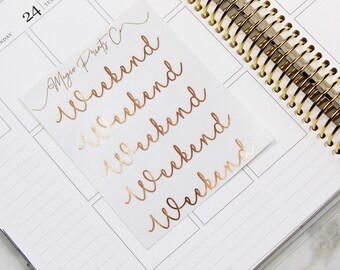 24
Magic Prints Co.
Weekend
Weekend
Weekend
Weekend
Weekend